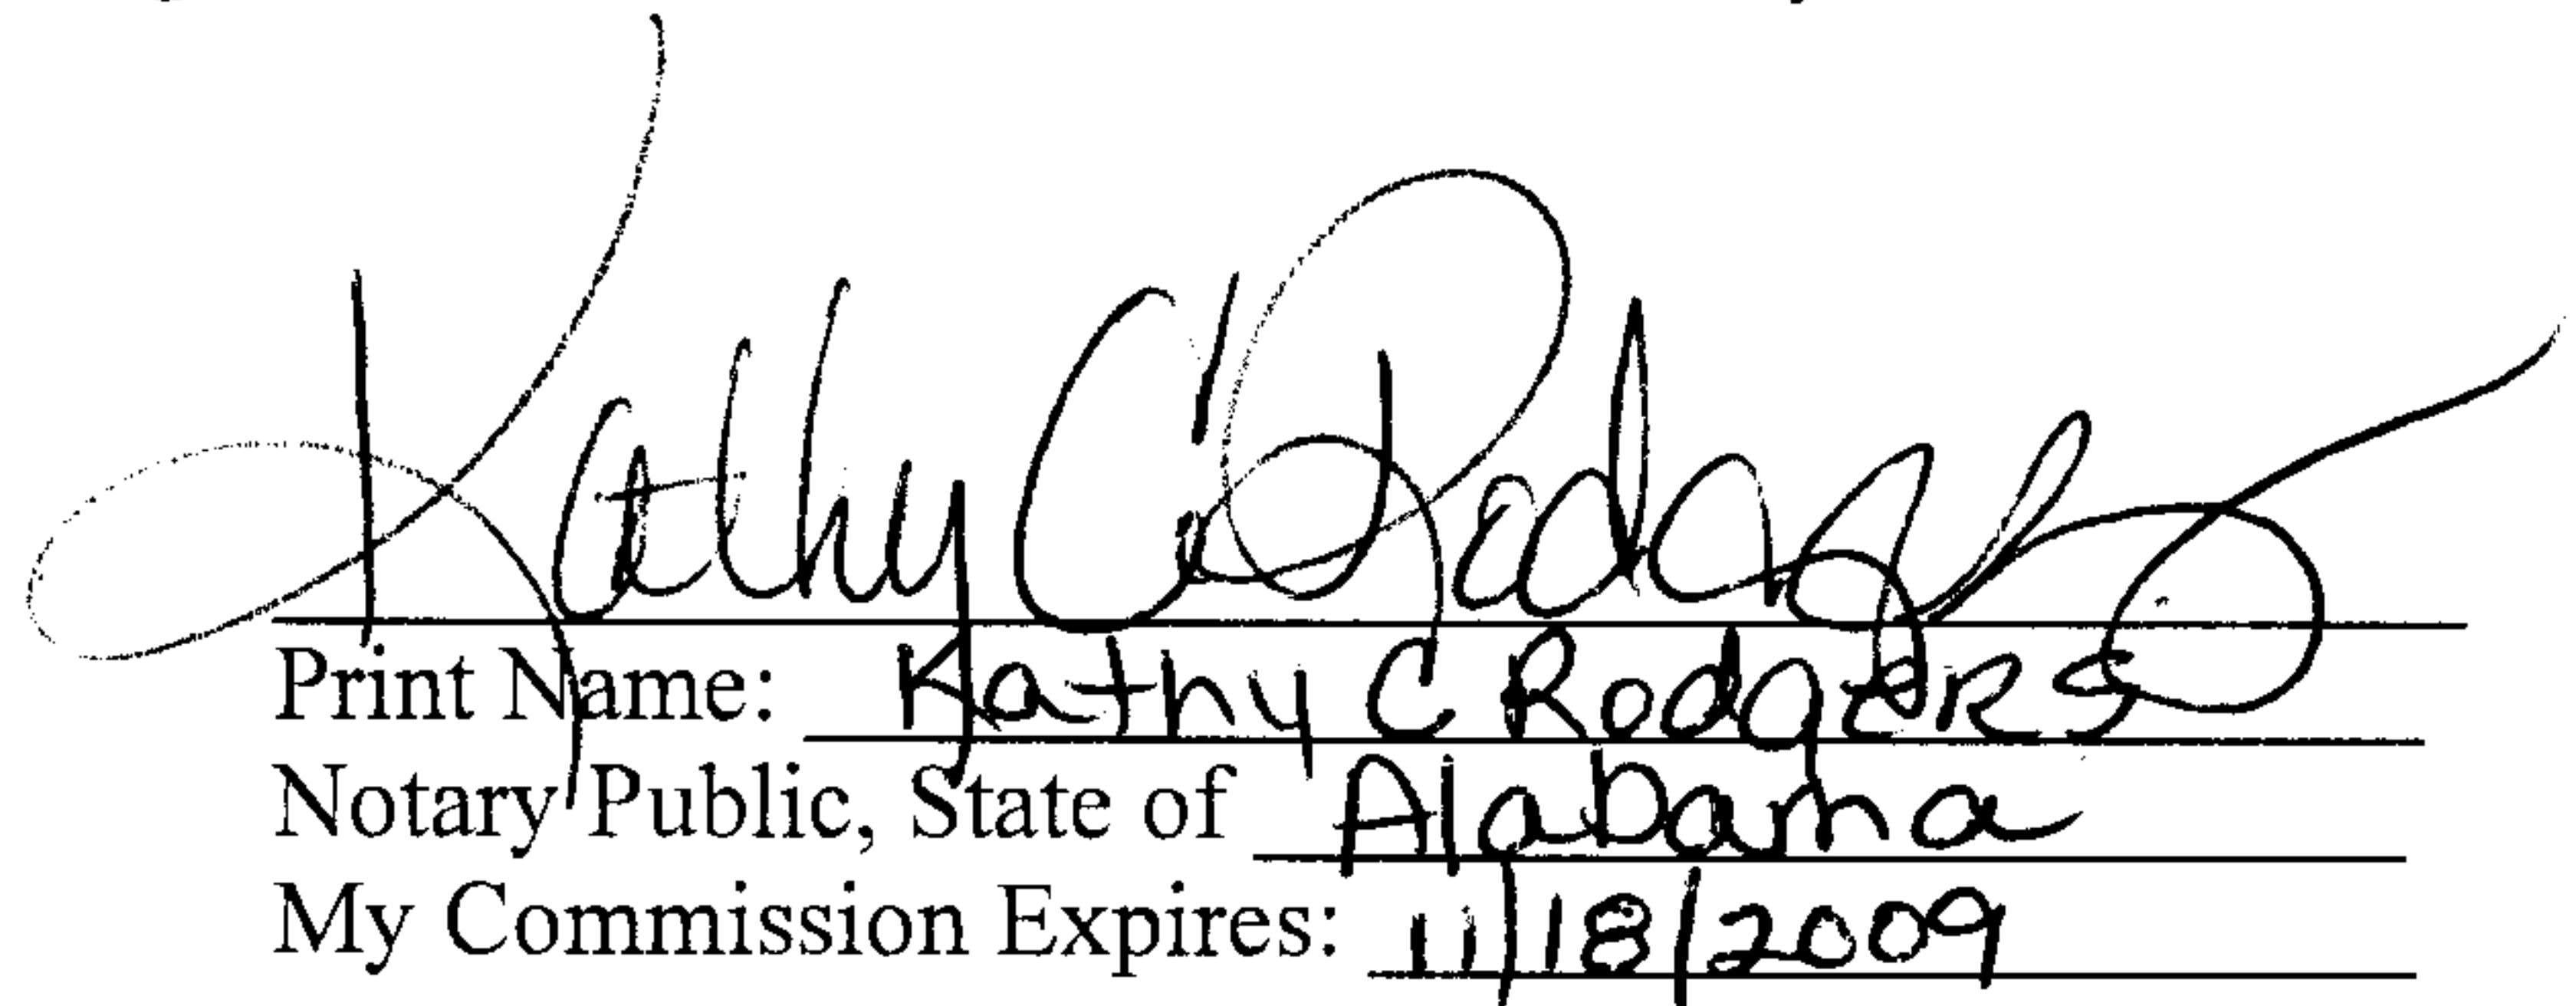 Kathy C Rodgers
Print Name: Kathy C Rodgers
Notary Public, State of Alabama
My Commission Expires: 11/18/2009